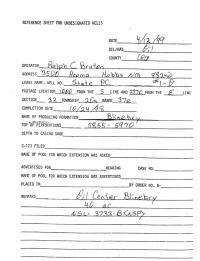 REFERENCE SHEET FOR UNDESIGNATED WELLS
DATE 4/12/99
OIL/GAS Oil
COUNTY Lea
OPERATOR Ralph C Bruton
ADDRESS 3500 Acoma Hobbs NM 88240
LEASE NAME, WELL NO. State PC #1-B
FOOTAGE LOCATION, FROM THE S LINE AND 2370 FROM THE E LINE
SECTION 32 TOWNSHIP RANGE 37E
COMPLETION DATE 10/24/98
NAME OF PRODUCING FORMATION Blinebry
TOP OF PERFORATIONS 5865 - 5970
DEPTH TO CASING SHOE
C-123 FILED
NAME OF POOL FOR WHICH EXTENSION WAS ASKED
ADVERTISED FOR HEARING CASE NO.
NAME OF POOL FOR WHICH EXTENSION WAS ADVERTISED
PLACED IN BY ORDER NO. R-
REMARKS Oil Center Blinebry
40 ac
NSL-3733-B(NSP)